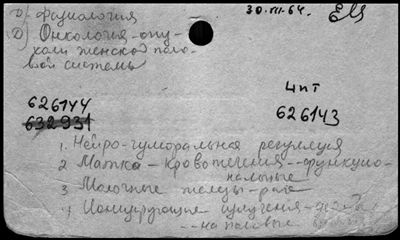 30.VII.64.
1) Физиология
2) Онкология - опу-
холи женской поло-
вой системы
626144
ЦПТ
632931
626143
1. Нейро-гуморальная регуляция
2 Матка - кровотечения - функцио-
нальные
3 Молочные железы - раке
4 Ионизирующие излучения -
- на половые